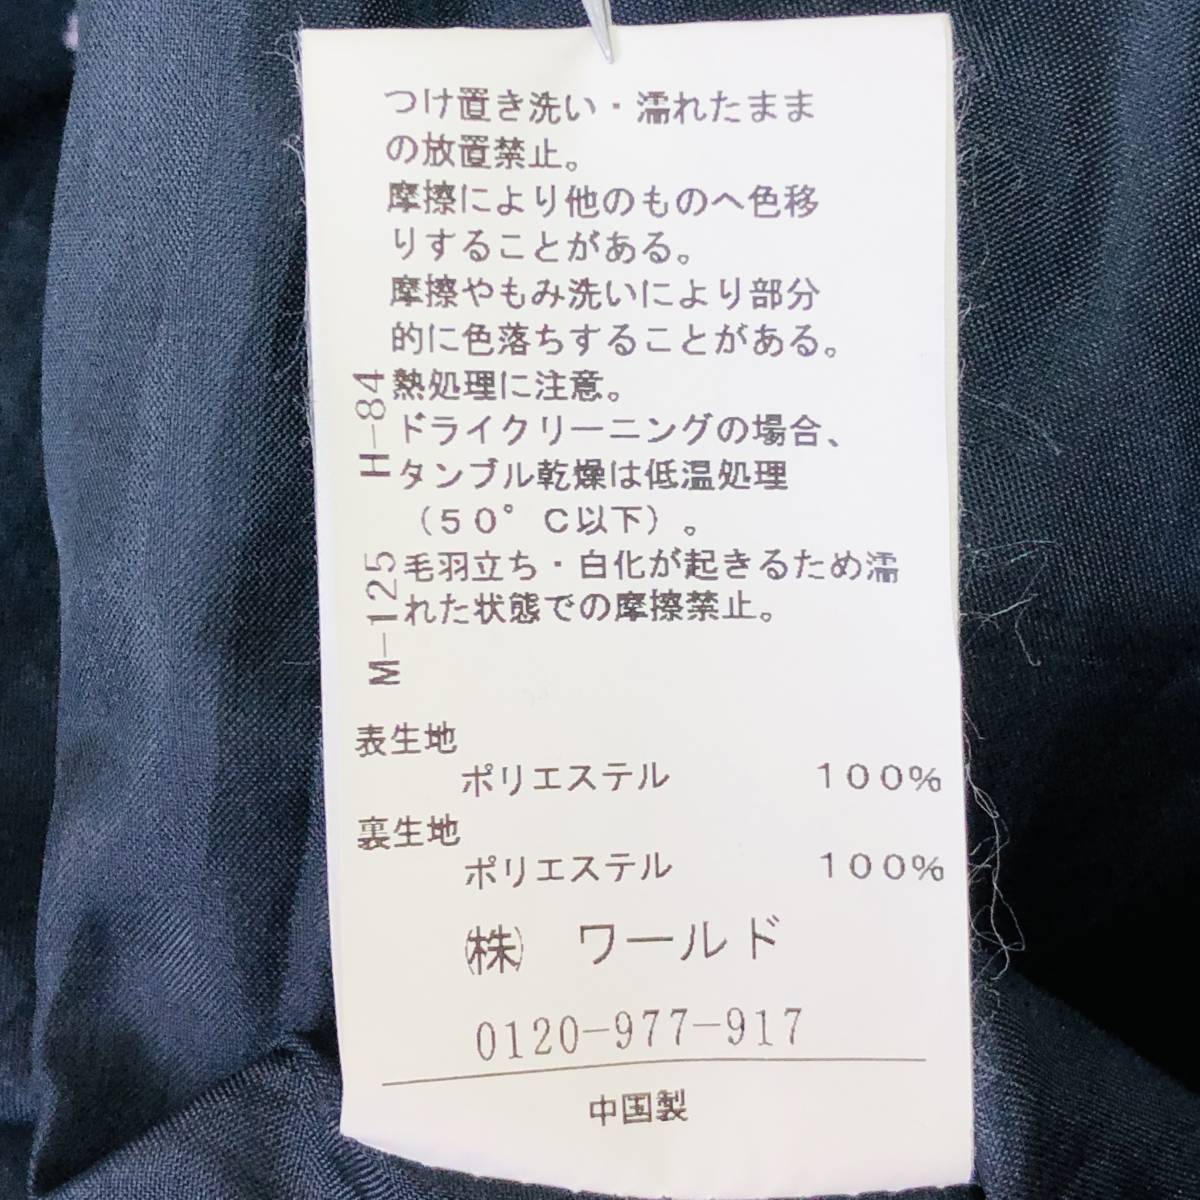 つけ置き洗い・濡れたまま
の放置禁止。
摩擦により他のものへ色移
りすることがある。
摩擦やもみ洗いにより部分
的に色落ちすることがある。
熱処理に注意。
ドライクリーニングの場合、
タンブル乾燥は低温処理
（５０°Ｃ以下）。
毛羽立ち・白化が起きるため濡
れた状態での摩擦禁止。
H-84
M-125
表生地
ポリエステル １００％
裏生地
ポリエステル １００％
㈱ ワールド
0120-977-917
中国製